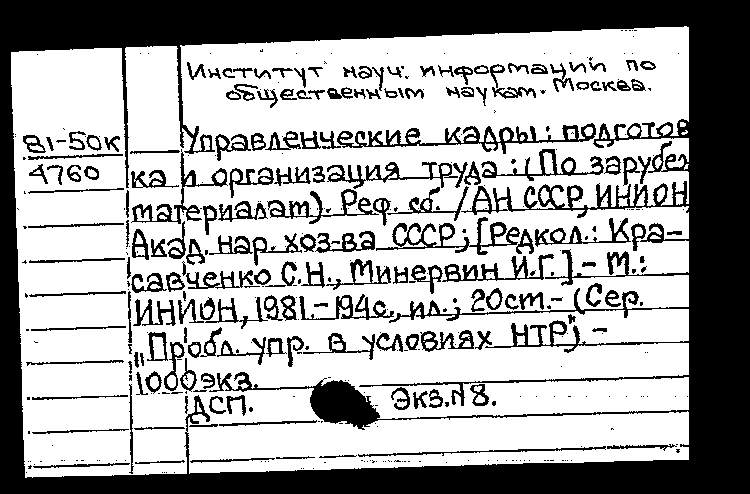 Институт науч. информации по
общественным наукам. Москва.
81-50к
4760
Управленческие кадры: подготов
ка и организация труда: (По зарубеж
материалам). Реф. сб. /АН СССР, ИНИОН,
Акад. нар. хоз-ва СССР; [Редкол.: Кра-
савченко С.Н., Минервин И.Г.].- М.:
ИНИОН, 1981.-194с., ил.; 20см.- (Сер.
„Пробл. упр. в условиях НТР"). -
1000экз.
ДСП. Экз.N8.